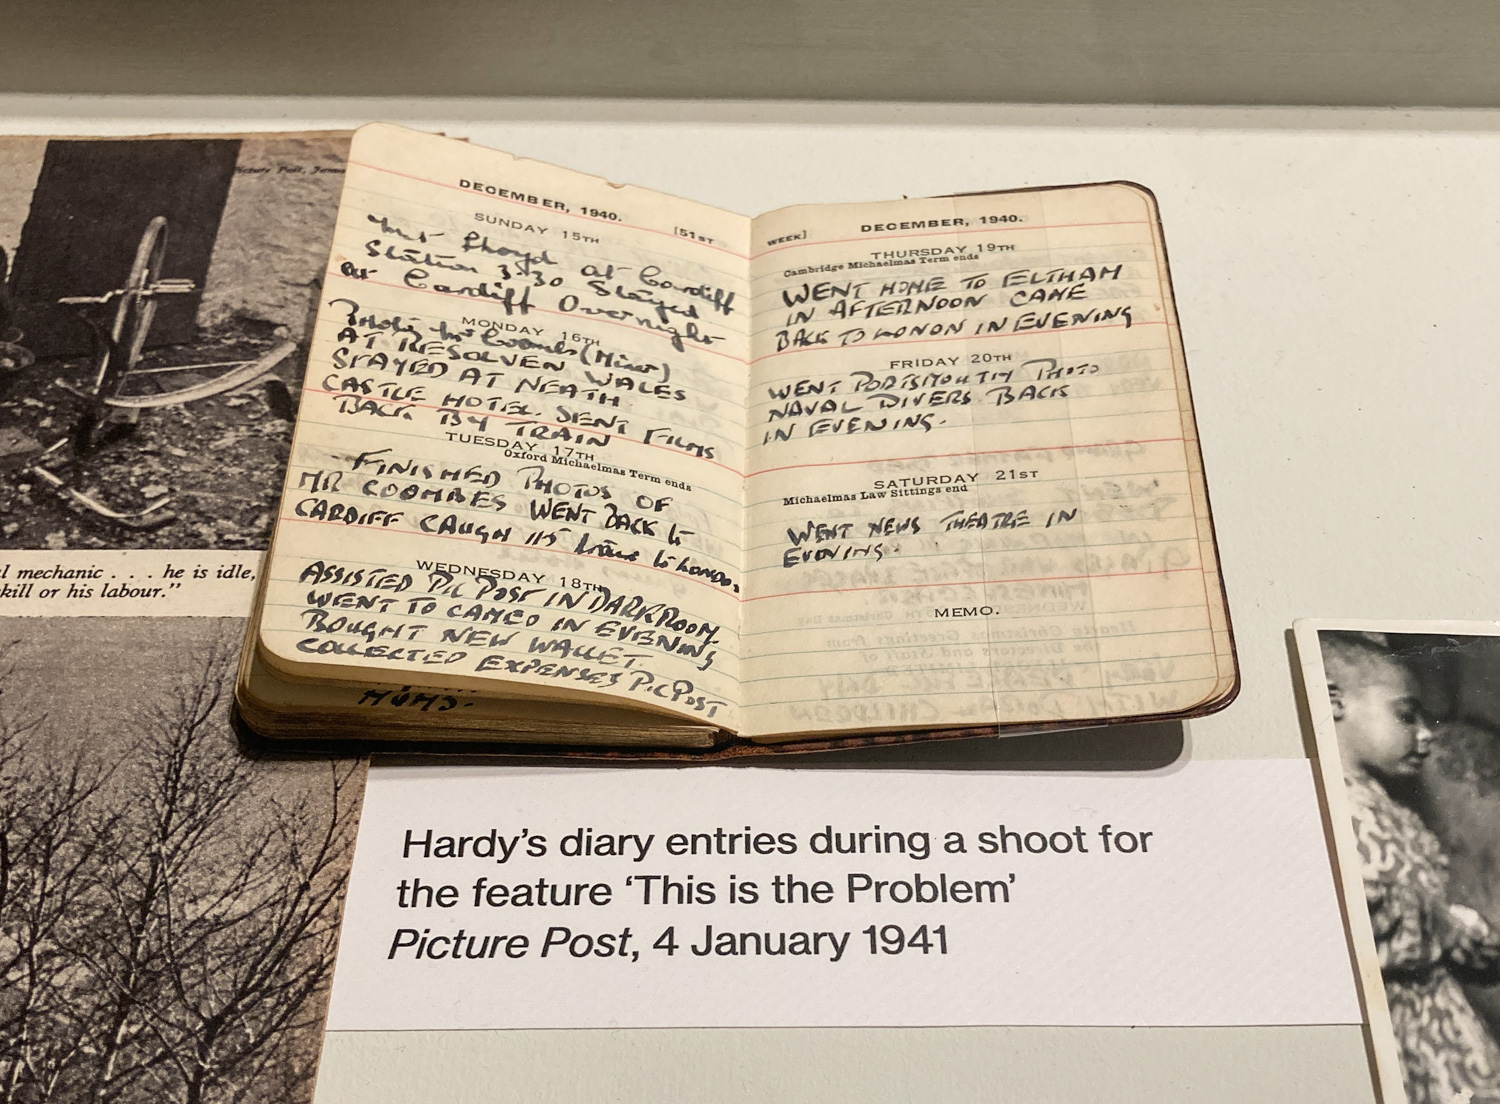 Picture Post, Janua
DECEMBER, 1940.
[51ST
SUNDAY 15TH
Met Lloyd at Cardiff
Station 3.30 Stayed
at Cardiff Overnight
MONDAY 16TH
Photo Mr Coombes (Miner)
AT RESOLVEN WALES
STAYED AT NEATH
CASTLE HOTEL. SENT FILMS
BACK BY TRAIN
TUESDAY 17TH
Oxford Michaelmas Term ends
FINISHED PHOTOS OF
MR COOMBES WENT BACK to
CARDIFF CAUGH 115 to LONDON
WEDNESDAY 18TH
ASSISTED PIC POST IN DARKROOM
WENT TO CAMEO IN EVENING
BOUGHT NEW WALLET.
COLLECTED EXPENSES PIC POST
MUMS.
WEEK]
DECEMBER, 1940.
THURSDAY 19TH
Cambridge Michaelmas Term ends
WENT HOME TO ELTHAM
IN AFTERNOON CAME
BACK TO LONON IN EVENING
FRIDAY 20TH
WENT PORTSMOUTH PHOTO
NAVAL DIVERS BACK
IN EVENING.
SATURDAY 21ST
Michaelmas Law Sittings end
WENT NEWS THEATRE IN
EVENING.
MEMO.
l mechanic . . . he is idle,
kill or his labour."
Hardy's diary entries during a shoot for
the feature 'This is the Problem'
Picture Post, 4 January 1941